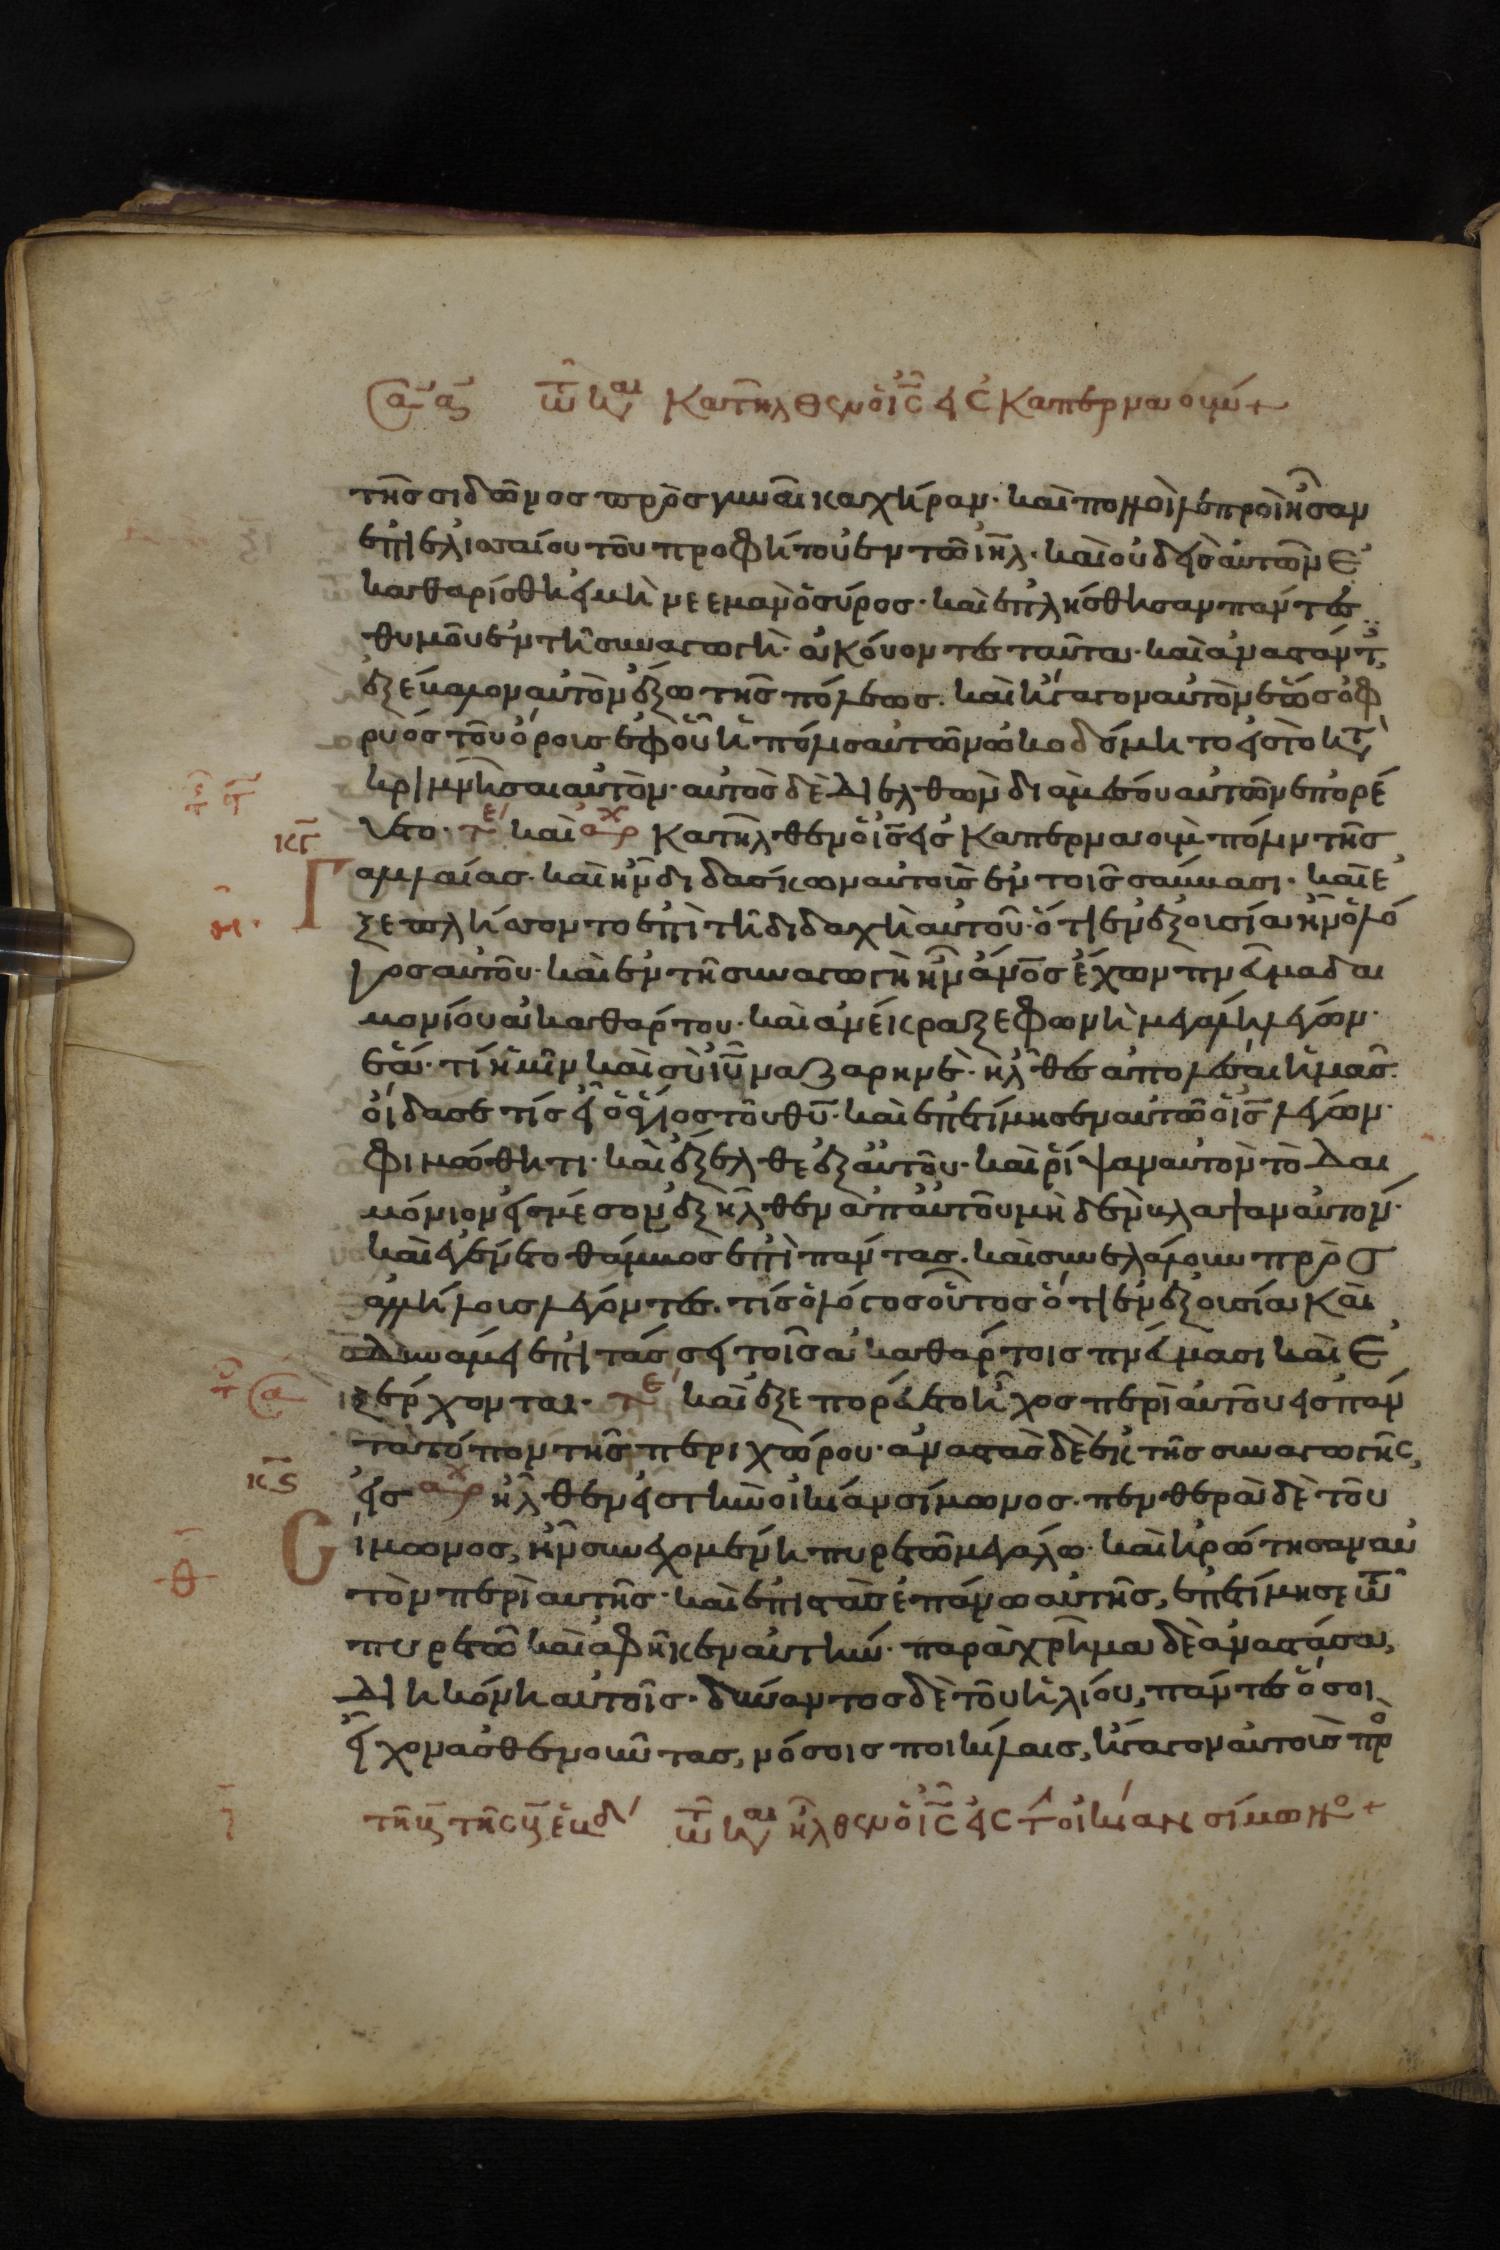 τῶ κιαι κατῆλθεν ὁ ις εἰς Καπερναούμ +
τῆς σιδῶνος πρὸς γυναῖκα χήραν· καὶ πολλοὶ λεπροὶ ἦσαν
ἐπὶ ἐλισσαίου τοῦ προφήτου ἐν τῶ ιηλ· καὶ οὐδεὶς αὐτῶν ἐ
καθαρίσθη εἰ μὴ νεεμὰν ὁ σύρος· καὶ ἐπλήσθησαν πάντες
θυμοῦ ἐν τῆ συναγωγῆ· ἀκούοντες ταῦτα· καὶ ἀναστάντ
ἐξέβαλον αὐτὸν ἔξω τῆς πόλεως. καὶ ἤγαγον αὐτὸν ἕως ὀφ
ρύος τοῦ ὄρους ἐφ οὗ ἡ πόλις αὐτῶν ὠκοδόμητο εἰς τὸ κατ
κρημνῆσαι αὐτόν· αὐτὸς δὲ διελθὼν διὰ μέσου αὐτῶν ἐπορεύ
ετο· τε καὶ αρχ κατῆλθεν ὁ ις εἰς Καπερναοὺμ πόλιν τῆς
κγ
Γ αλιλαίας· καὶ ἦν διδάσκων αὐτοὺς ἐν τοῖς σάββασι· καὶ ἐ
η· ξεπλήσσοντο ἐπὶ τῆ διδαχῆ αὐτοῦ· ὅτι ἐν ἐξουσία ἦν ὁ λό
γος αὐτοῦ· καὶ ἐν τῆ συναγωγῆ ἦν ἀνος ἔχων πνεῦμα δαι
μονίου ἀκαθάρτου· καὶ ἀνέκραξε φωνῆ μεγάλη λέγων·
ἔα· τί ἡμῖν καὶ σὺ ιυ ναζαρηνέ· ἦλθες ἀπολέσαι ἡμᾶς·
οἶδα σε τίς εἶ ὁ ἅγιος τοῦ θυ· καὶ ἐπετίμησεν αὐτῶ ὁ ις λέγων·
φιμώθητι· καὶ ἔξελθε ἐξ αὐτοῦ· καὶ ῥίψαν αὐτὸν τὸ δαι
μόνιον εἰς μέσον ἐξῆλθεν ἀπ αὐτοῦ μηδὲν βλάψαν αὐτόν·
καὶ ἐγένετο θάμβος ἐπὶ πάντας. καὶ συνελάλουν πρὸς
ἀλλήλους λέγοντες. τίς ὁ λόγος οὗτος ὅτι ἐν ἐξουσία καὶ
δυνάμει ἐπιτάσσει τοῖς ἀκαθάρτοις πνεύμασι καὶ ἐ
ξέρχονται· τε καὶ ἐξεπορεύετο ἦχος περὶ αὐτοῦ εἰς πάν
τα τόπον τῆς περιχώρου· ἀναστὰς δὲ ἐκ τῆς συναγωγῆς,
κς εἰς αρχ ἦλθεν εἰς τὴν οἰκίαν σίμωνος. πενθερὰ δὲ τοῦ
C ίμωνος, ἦν συνεχομένη πυρετῶ μεγάλω· καὶ ἠρώτησαν αὐ
θ τὸν περὶ αὐτῆς· καὶ ἐπιστὰς ἐπάνω αὐτῆς, ἐπετίμησε τῶ
πυρετῶ καὶ ἀφῆκεν αὐτήν· παραχρῆμα δὲ ἀναστᾶσα,
διηκόνη αὐτοῖς· δύναντος δὲ τοῦ ἡλίου, πάντες ὅσοι
εἶχον ἀσθενοῦντας, νόσοις ποικίλαις, ἤγαγον αὐτοὺς πρ
ι τῆ τῆς ἑβδ τῶ και ἦλθεν ὁ ις εἰς τ οἰκίαν σίμωνο +